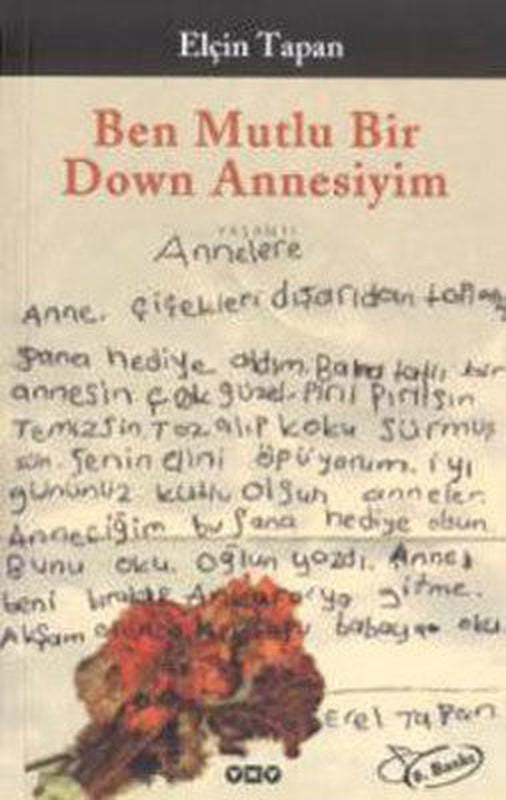 Elçin Tapan
Ben Mutlu Bir
Down Annesiyim
YAŞANTI
Annelere
Anne. çiçekleri dışarıdan
Şana hediye aldım. bir
annesin çok güzel. Piril Pirilsin
Temizsin. Toz alıp koku sürmüş
sün. Şenin elini öpüyorum. iyi
gününüz kutlu olşun anneler
Anneciğim bu şana hediye olsun.
Bunu oku. oğlun yazdı. Anne
beni Ankara'ya gitme.
Akşam babaya oku
Erel Tapan
YKY
8. Baskı